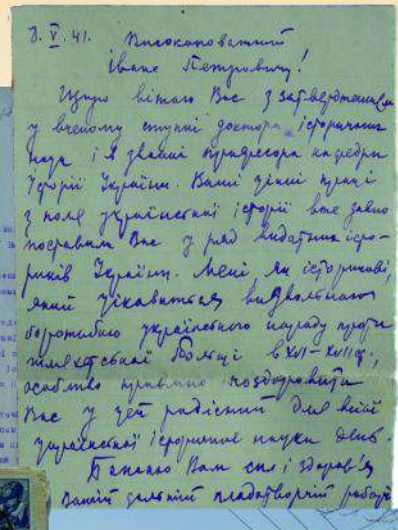 8. V. 41. Високоповажний
Іване Петровичу!
Щиро вітаю Вас з затвердженням
у вченому ступні доктора історичних
наук і в званні професора кафедри
Історії України. Ваші цінні праці
з поля української історії вже давно
поставили Вас у ряд видатних істо-
риків України. Мені як історикові,
який цікавиться визвольною
боротьбою українського народу проти
шляхетської Польщі в XVI-XVII ст.,
особливо приємно поздоровити
Вас у цей радісний для всієї
української історичної науки день.
Бажаю Вам сил і здоров'я
Вашій дальшій плодотворчій роботі